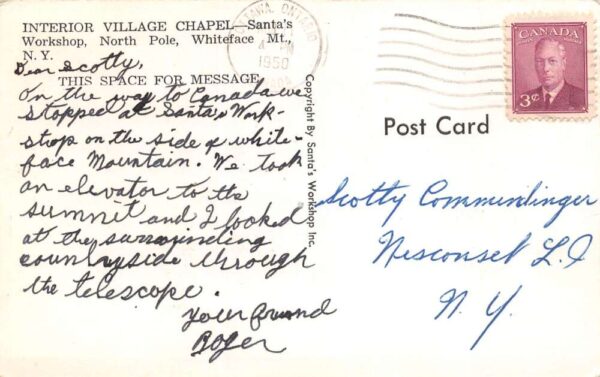 INTERIOR VILLAGE CHAPEL—Santa's
Workshop, North Pole, Whiteface Mt.,
N. Y.
Dear Scotty,
THIS SPACE FOR MESSAGE
On the way to Canada we
stopped at Santa's Work-
shop on the side of white-
face Mountain. We took
an elevator to the
summit and I looked
at the surrounding
countryside through
the telescope.
Your friend
Roger
Copyright By Santa's Workshop Inc.
OTTAWA, ONTARIO
4 PM
1950
CANADA
POSTES POSTAGE
3¢
Post Card
Scotty Commindinger
Nesconset L.I
N.Y.